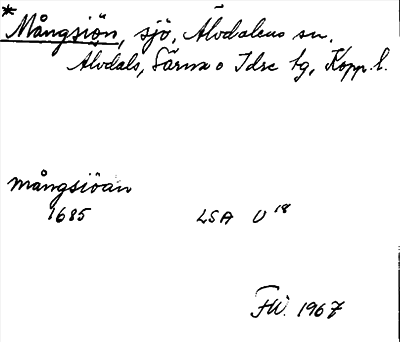 *Mångsiön, sjö, Älvdalens sn.
Älvdals, Särna o Idre tg, Kopp. l.
Mångsiöän
1685 LSA U 18
FW. 1967